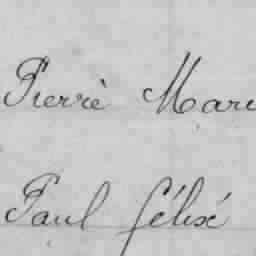 Pierre Mari
Paul Félix